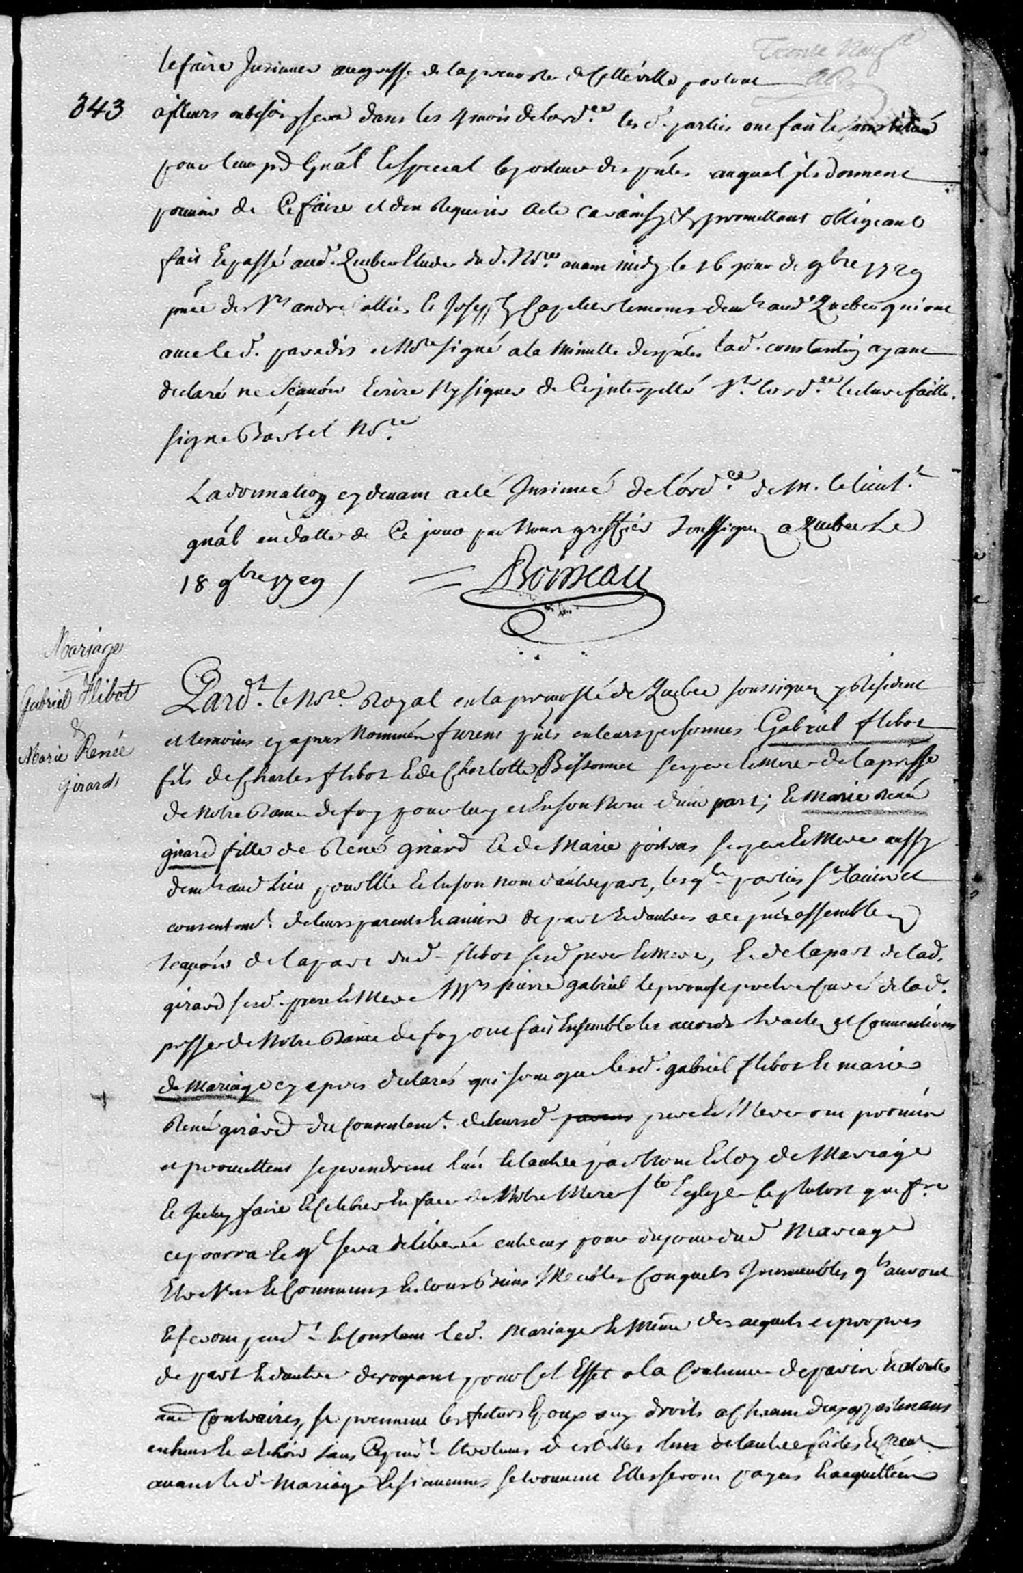 Trente Neuf
le faire Insinuer au greffe de la prevosté de cette ville partout
343
ailleurs ou besoin sera dans les 4 mois de lord.ce les d. parties ont fait
pour leur pr gnâl et special le porteur des pñtes auquel ils donnent
pouvoir de ce faire et d'en Requerir acte car ainsy &c promettant obligeant
fait et passé aud. Quebec Etude du d. No.re avant midy le 16 jour de 9bre 1729
pñce des Srs andré et Joseph temoins dem.t aud Quebec qui ont
avec le d. paradis et No.re signé a la Minutte des pñtes lad. constantin ayant
declaré ne sçavoir Ecrire Ny signer de ce interpellé S.t lord.ce lecture faitte.
signé Barbel No.re
La donnation cy devant a eté Insinuée de l'ord.ce de M. le lieut.t
gnâl en datte de ce jour par Nous greffier soussigné a Quebec Le
18 9bre 1729 / Boisseau
Mariage
Gabriel Flibot
&
Marie Renée
Girard
Pard.t le No.re Royal en la prevosté de Quebec soussigné y resident
et temoins cy apres Nommés furent pñts en leurs personnes Gabriel flibot
fils de Charles flibot et de Charlotte Bissonnet ses pere et mere de la pñsse
de Notre Dame de foy pour luy et En son Nom d'une part; et Marie René
girard fille de René girard et de Marie ses pere et Mere aussy
dem.t aud Lieu pour Elle et En son nom d'autre part, lesq.les parties
consentem.t de leurs parents et amis de part et d'autre a ce pñts assemblés
sçavoir de la part dud. flibot sesd. pere et Mere, et de la part de lad.
girard sesd. pere et Mere M.rs pierre gabriel le prevost prestre Curé de lad.
pñsse de Notre Dame de foy ont fait Ensemble les accords traités et Conventions
de Mariage cy apres declarés qui sont que lesd. gabriel flibot et marie
René girard du consentem.t de leursd. pere et Mere ont promis
et promettent se prendre l'un et l'autre par Nom et loy de Mariage
et Iceluy faire et Celebrer En face de Notre Mere S.te Eglise le plutost que f.re
ce poura et q.l sera deliberé entreux pour du jour dud Mariage
Etre Uns et Communs En tous biens Meubles Conquets Immeubles q.ls auront
et feront pend.t et constant led. Mariage et Même des acquets et propres
de part et d'autre derogeant pour cet Effet a la Coutume de paris et a toutes
autres Contraires, se prennent les futurs Epoux aux droits a chacun d'eux appartenans
avant le d. Mariage et si aucunes se trouvent Elles seront payées et acquittées